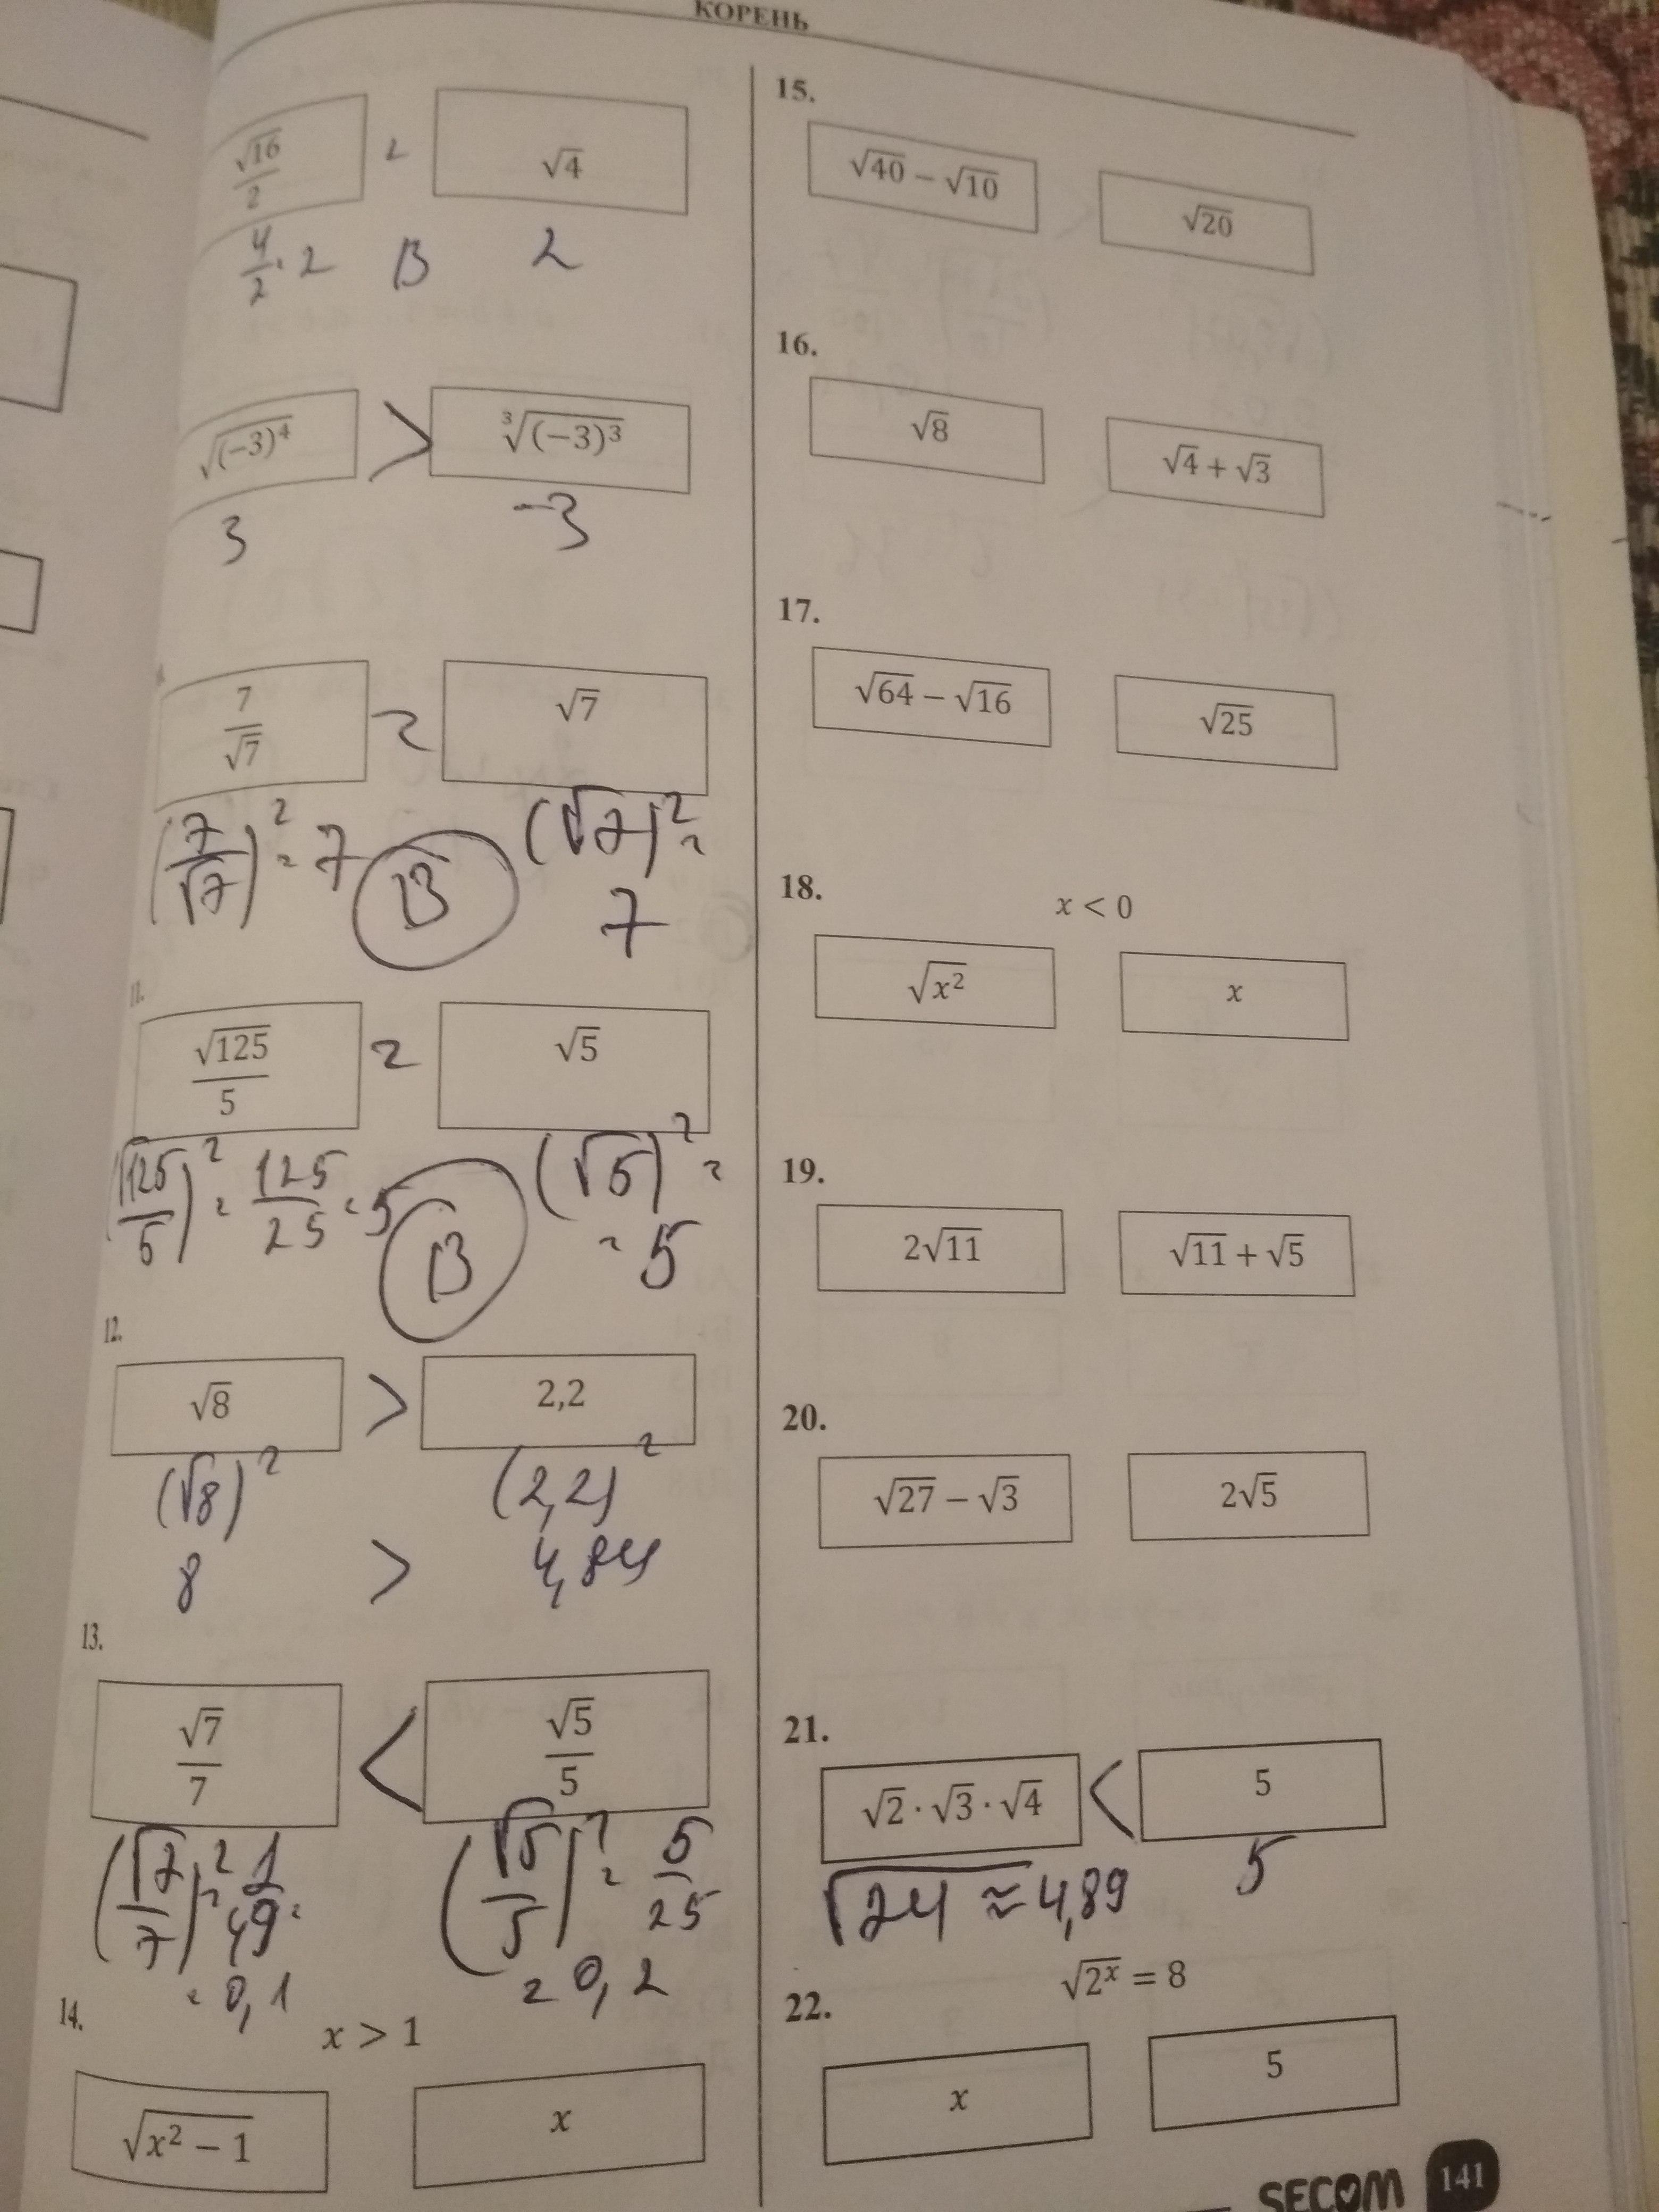 КОРЕНЬ
√16/2 = √4
4/2 = 2 B 2
√(−3)⁴ > ∛(−3)³
3 −3
7/√7 = √7
(7/√7)² = 7 B (√7)² =
7
11.
√125/5 = √5
(√125/5)² = 125/25 = 5 B (√5)² =
= 5
12.
√8 > 2,2
(√8)² (2,2)²
8 > 4,84
13.
√7/7 < √5/5
(√7/7)² = (√5/5)² = 5/25
= 0,1 = 0,2
14.
x > 1
√x² − 1 x
15.
√40 − √10 √20
16.
√8 √4 + √3
17.
√64 − √16 √25
18.
x < 0
√x² x
19.
2√11 √11 + √5
20.
√27 − √3 2√5
21.
√2 · √3 · √4 < 5
√24 ≈ 4,89 5
√2ˣ = 8
22.
x 5
SECOM 141